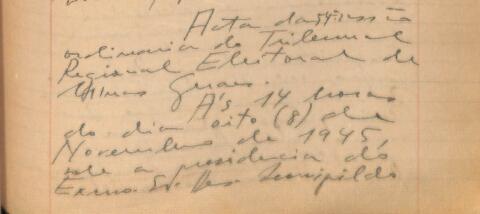 Acta da 54ª sessão
ordinaria do Tribunal
Regional Eleitoral de
Minas Geraes.
Ás 14 horas
do dia oito (8) de
Novembro de 1945,
sob a presidencia do
Exmo. Sr. Des. Leovigildo